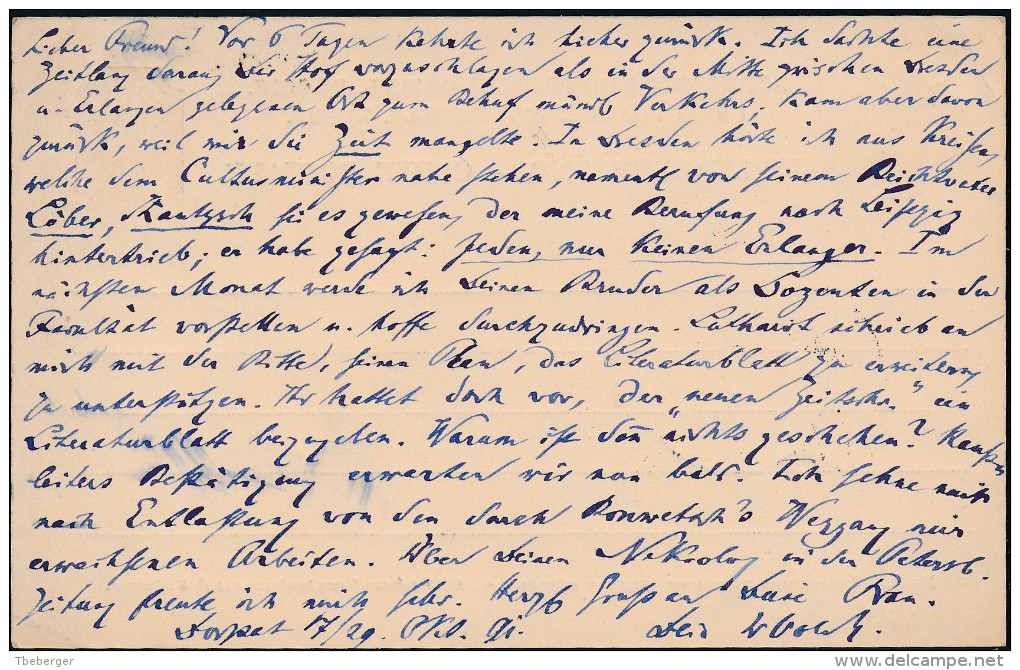 Lieber Freund! Vor 6 Tagen kehrte ich hieher zurück. Ich dachte eine
Zeitlang daran Dir Hof vorzuschlagen als in der Mitte zwischen Dresden
u. Erlangen gelegenen Ort zum Behuf mündl Verkehrs, kam aber davon
zurück, weil mir die Zeit mangelte. In Dresden hörte ich aus Kreisen,
welche dem Cultusminister nahe stehen, namentl von seinem Beichtvater
Löber, Kautzsch sei es gewesen, der meine Berufung nach Leipzig
hintertrieb; er habe gesagt: jeden, nur keinen Erlanger. Im
nächsten Monat werde ich Deinen Bruder als Dozenten in der
Facultät vorstellen u. hoffe durchzudringen. Luthardt schrieb an
mich mit der Bitte, seinen Plan, das Literaturblatt zu erweitern,
zu unterstützen. Ihr hattet doch vor, der "neuen Zeitschr." ein
Literaturblatt beizugeben. Warum ist den nichts geschehen?
leiters Bestätigung erwarten wir nun bald. Ich sehne mich
nach Entlastung von den durch Bonwetsch's Weggang mir
erwachsenen Arbeiten. Über Deinen Nekrolog in der Petersb.
Zeitung freute ich mich sehr. Herzl Gruß an Deine Frau.
Dorpat 17/29. 91. Dein WVolck.
Tbeberger
www.delcampe.net